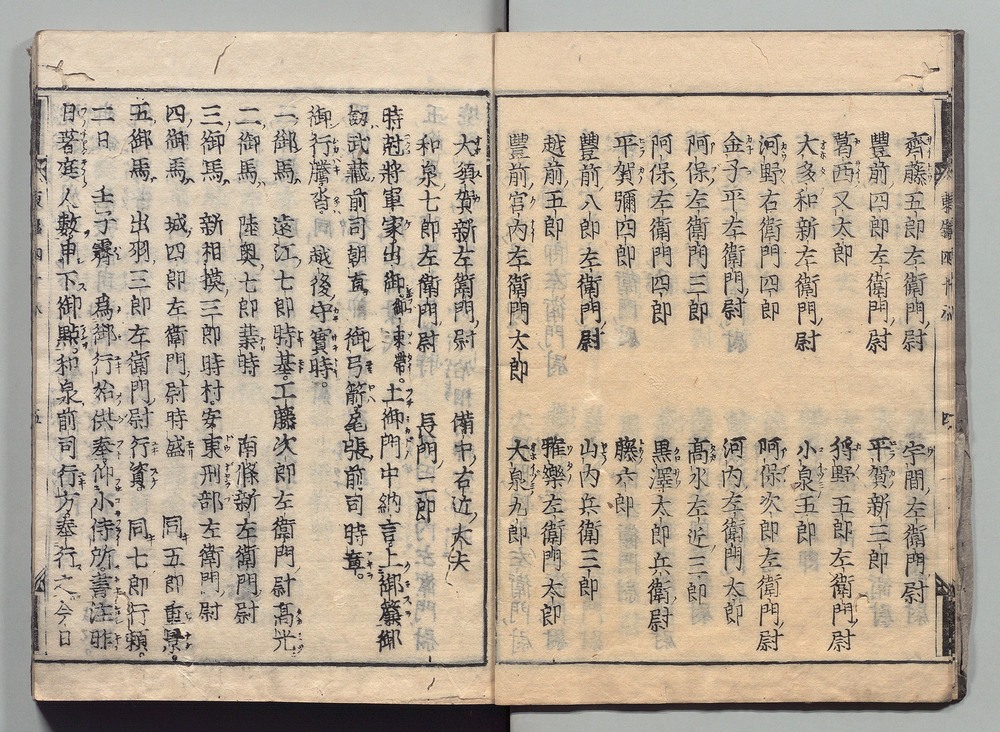 齊藤五郎左衛門尉　宇間左衛門尉
豐前四郎左衛門尉　平賀新三郎
葛西又太郎　狩野五郎左衛門尉
大多和新左衛門尉　小泉五郎
河野右衛門四郎　阿保次郎左衛門尉
金子平左衛門尉　河内左衛門太郎
阿保左衛門三郎　高水左近三郎
阿保左衛門四郎　黒澤太郎兵衛尉
平賀彌四郎　藤六郎
豐前八郎左衛門尉　山内兵衛三郎
越前五郎　雅樂左衛門太郎
豐前宮内左衛門太郎　大泉九郎
大須賀新左衛門尉　備中右近大夫
和泉七郎左衛門尉　長門三郎
時尅將軍家出御御束帶。土御門中納言上御簾御
劔武藏前司朝直。御弓箭尾張前司時章。
御行騰沓同越後守實時。
一御馬　遠江七郎時基。工藤次郎左衛門尉高光
二御馬　陸奥七郎業時　南條新左衛門尉
三御馬　新相摸三郎時村。安東刑部左衛門尉
四御馬　城四郎左衛門尉時盛　同五郎重景。
五御馬　出羽三郎左衛門尉行資。同七郎行頼。
二日　壬子霽　爲御行始供奉仰小侍所書注昨
日著庭人數申下御點。和泉前司行方奉行之今日